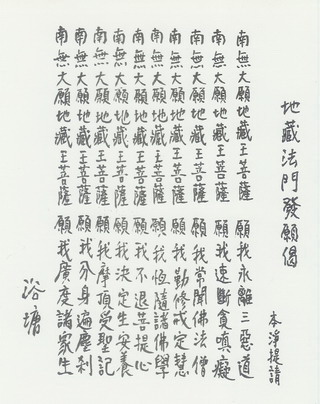 地藏法門發願偈
本淨提請
南無大願地藏王菩薩 願我永離三惡道
南無大願地藏王菩薩 願我速斷貪嗔癡
南無大願地藏王菩薩 願我常聞佛法僧
南無大願地藏王菩薩 願我勤修戒定慧
南無大願地藏王菩薩 願我恆隨諸佛學
南無大願地藏王菩薩 願我不退菩提心
南無大願地藏王菩薩 願我決定生安養
南無大願地藏王菩薩 願我摩頂受聖記
南無大願地藏王菩薩 願我分身遍塵剎
南無大願地藏王菩薩 願我廣度諸眾生
浴塘